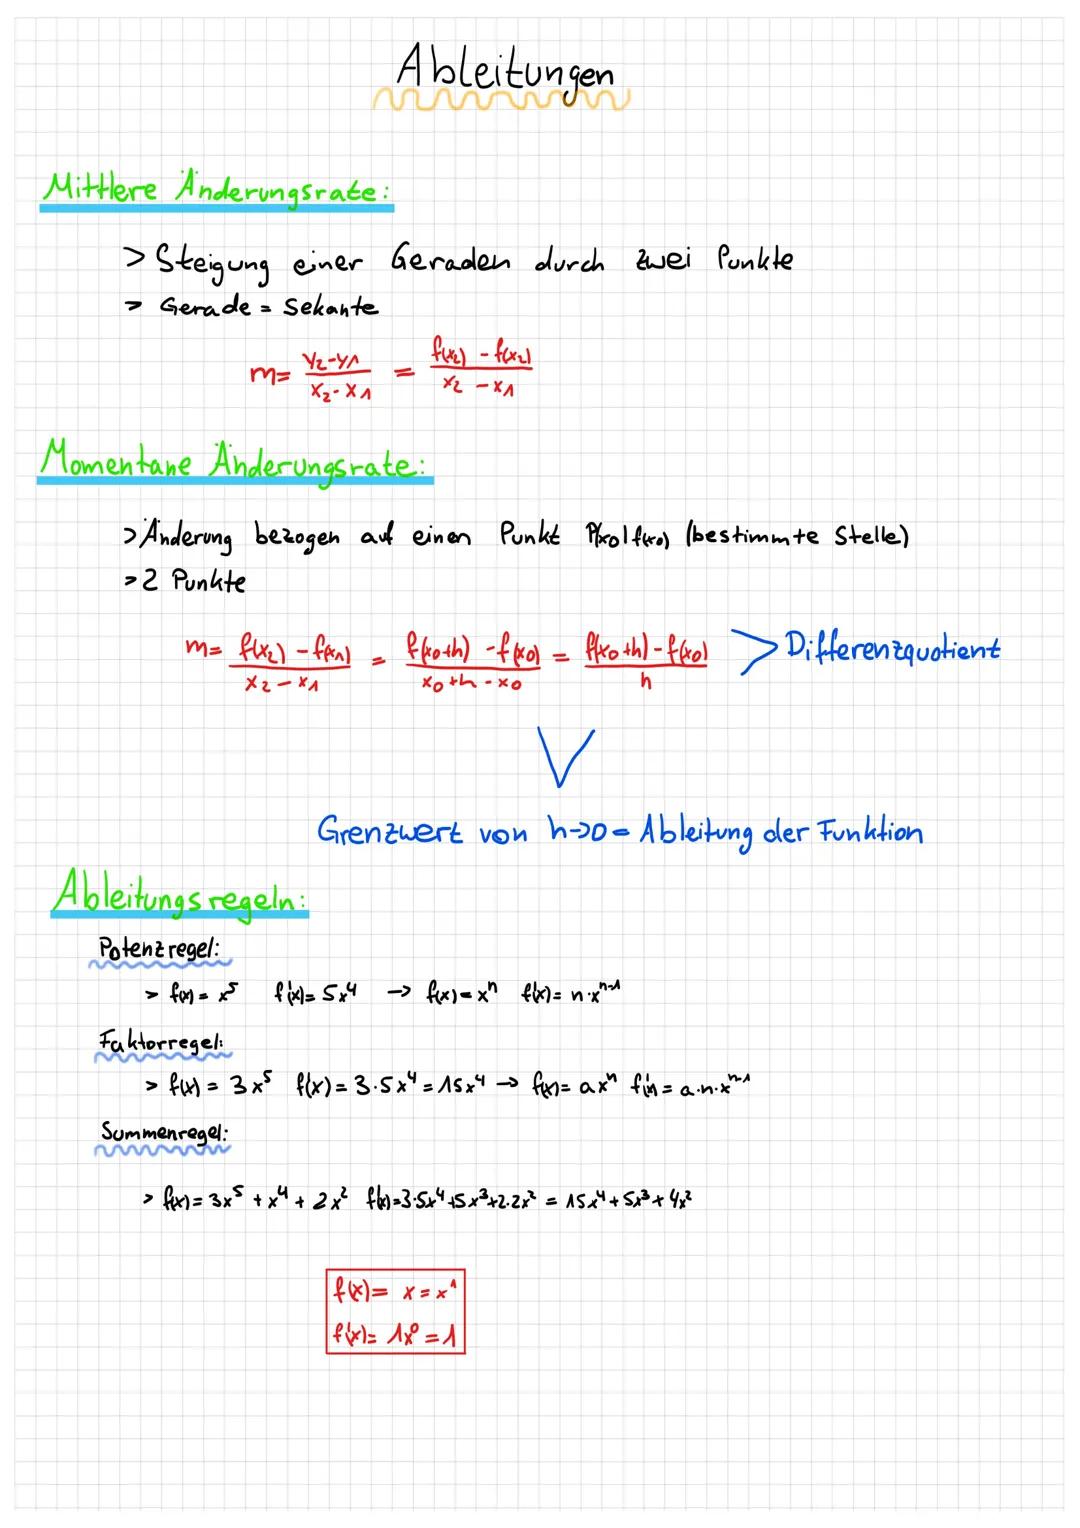 Ableitungen
Mittlere Änderungsrate:
> Steigung einer Geraden durch zwei Punkte
> Gerade = Sekante
m= y₂-y₁/x₂-x₁ = f(x₂) - f(x₂)/x₂ - x₁
Momentane Änderungsrate:
> Änderung bezogen auf einen Punkt P(x₀|f(x₀) (bestimmte Stelle)
> 2 Punkte
m= f(x₂) - f(x₁)/x₂ - x₁ = f(x₀+h) - f(x₀)/x₀+h - x₀ = f(x₀+h) - f(x₀)/h > Differenzquotient
Grenzwert von h->0 = Ableitung der Funktion
Ableitungsregeln:
Potenzregel:
> f(x) = x⁵ f'(x) = 5x⁴ -> f(x) = xⁿ f'(x) = n·xⁿ⁻¹
Faktorregel:
> f(x) = 3x⁵ f(x) = 3·5x⁴ = 15x⁴ -> f(x) = axⁿ f'(x) = a·n·xⁿ⁻¹
Summenregel:
> f(x) = 3x⁵ + x⁴ + 2x² f'(x) = 3·5x⁴+5x³+2·2x² = 15x⁴ + 5x³ + 4x²
f(x) = x = x¹
f'(x) = 1x⁰ = 1